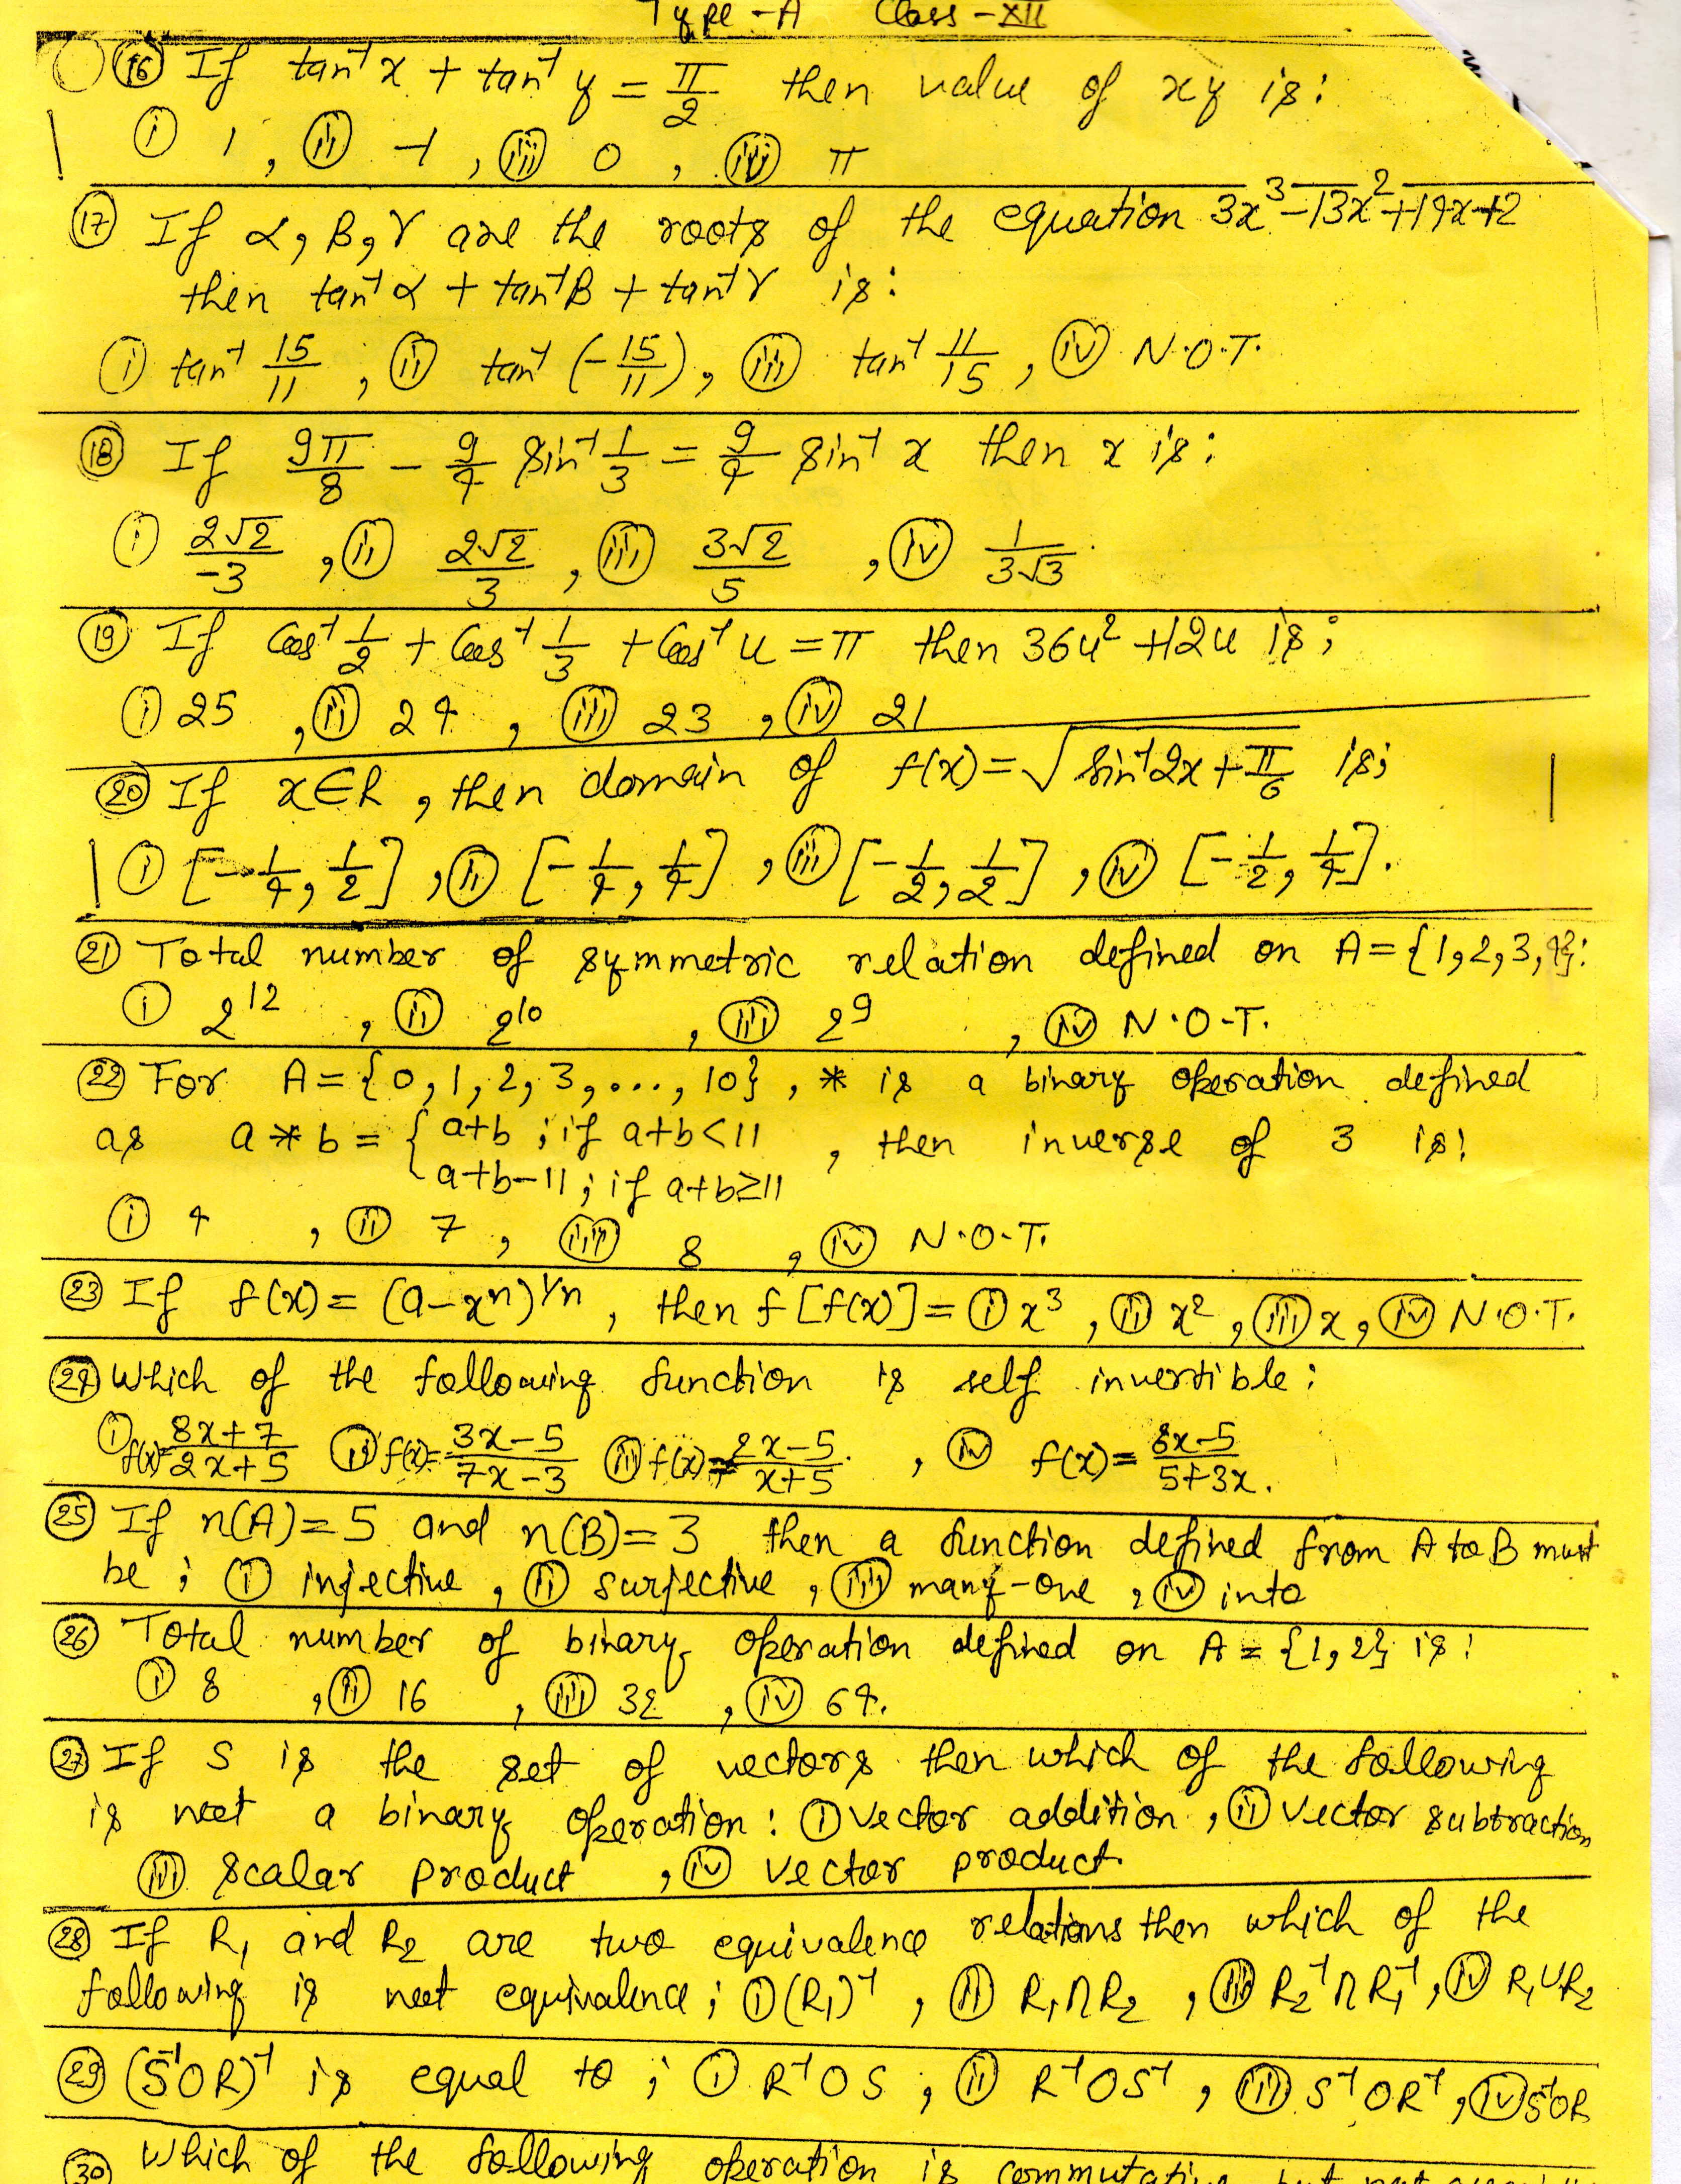 Type - A Class - XII
(16) If tan⁻¹x + tan⁻¹y = π/2 then value of xy is:
(i) 1, (ii) -1, (iii) 0, (iv) π
(17) If α, β, γ are the roots of the equation 3x³-13x²+14x+2
then tan⁻¹α + tan⁻¹β + tan⁻¹γ is:
(i) tan⁻¹ 15/11, (ii) tan⁻¹ (-15/11), (iii) tan⁻¹ 11/15, (iv) N.O.T.
(18) If 9π/8 - 9/4 sin⁻¹ 1/3 = 9/4 sin⁻¹ x then x is:
(i) 2√2/-3, (ii) 2√2/3, (iii) 3√2/5, (iv) 1/3√3.
(19) If Cos⁻¹ 1/2 + Cos⁻¹ 1/3 + Cos⁻¹ u = π then 36u² + 12u is;
(i) 25, (ii) 24, (iii) 23, (iv) 21
(20) If x∈R, then domain of f(x) = √(sin⁻¹2x + π/6) is;
(i) [-1/4, 1/2], (ii) [-1/4, 1/4], (iii) [-1/2, 1/2], (iv) [-1/2, 1/4].
(21) Total number of symmetric relation defined on A = {1,2,3,4}:
(i) 2¹², (ii) 2¹⁰, (iii) 2⁹, (iv) N.O.T.
(22) For A = {0,1,2,3,...,10}, * is a binary operation defined
as a * b = { a+b ; if a+b<11, then inverse of 3 is:
a+b-11 ; if a+b≥11
(i) 4, (ii) 7, (iii) 8, (iv) N.O.T.
(23) If f(x) = (a-xⁿ)^1/n, then f[f(x)] = (i) x³, (ii) x², (iii) x, (iv) N.O.T.
(24) Which of the following function is self invertible:
(i) f(x)= 8x+7/2x+5 (ii) f(x)= 3x-5/7x-3 (iii) f(x)= 2x-5/x+5, (iv) f(x)= 8x-5/5+3x.
(25) If n(A)=5 and n(B)=3 then a function defined from A to B must
be; (i) injective, (ii) surjective, (iii) many-one, (iv) into
(26) Total number of binary operation defined on A = {1,2} is:
(i) 8, (ii) 16, (iii) 32, (iv) 64.
(27) If S is the set of vectors then which of the following
is not a binary operation: (i) vector addition, (ii) vector subtraction
(iii) scalar product, (iv) vector product.
(28) If R₁ and R₂ are two equivalence relations then which of the
following is not equivalence; (i) (R₁)⁻¹, (ii) R₁∩R₂, (iii) R₂⁻¹∩R₁⁻¹, (iv) R₁∪R₂
(29) (S⁻¹OR)⁻¹ is equal to; (i) R⁻¹OS, (ii) R⁻¹OS⁻¹, (iii) S⁻¹OR⁻¹, (iv) S⁻¹OR
(30) Which of the following operation is commutative but not